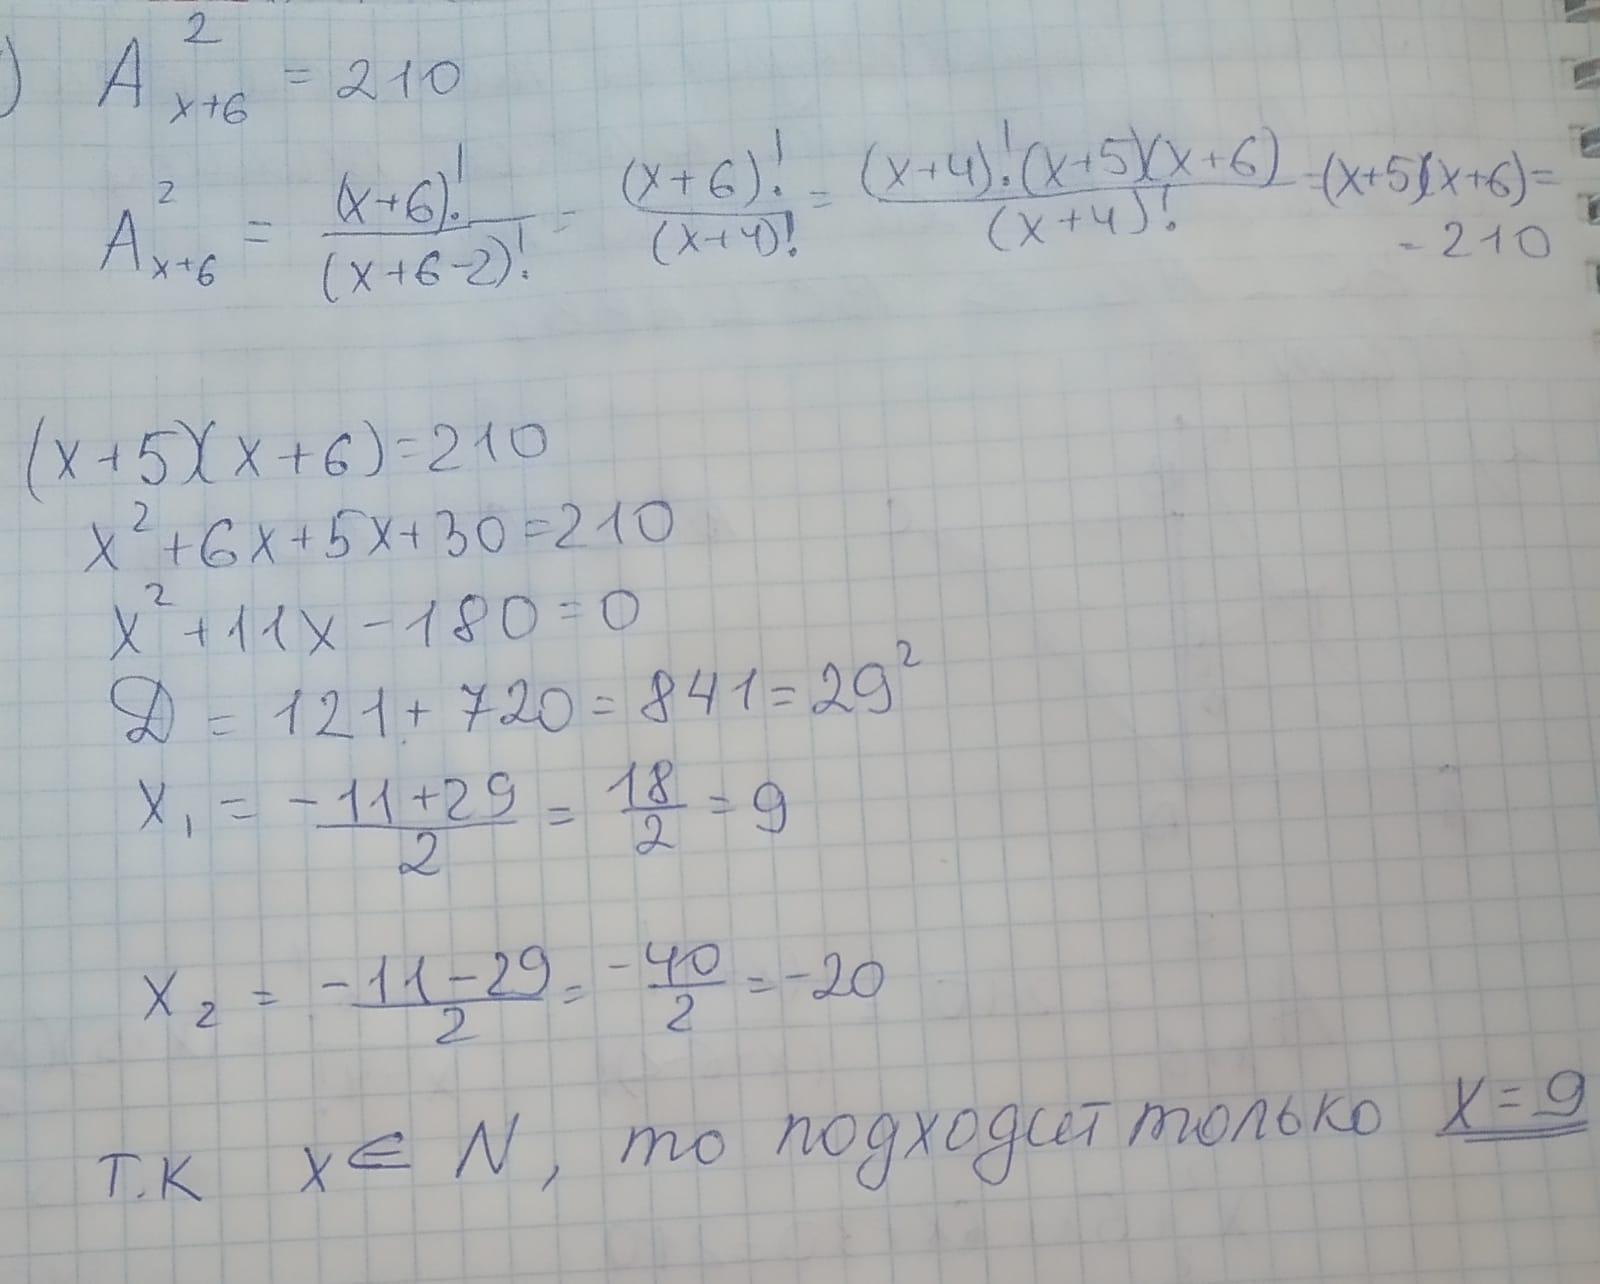 ) A²ₓ₊₆ = 210
A²ₓ₊₆ = (x+6)!/(x+6-2)! = (x+6)!/(x+4)! = (x+4)!(x+5)(x+6)/(x+4)! = (x+5)(x+6) =
= 210
(x+5)(x+6)=210
x²+6x+5x+30=210
x²+11x-180=0
D = 121+720=841=29²
x₁ = -11+29/2 = 18/2 = 9
x₂ = -11-29/2 = -40/2 = -20
т.к x ∈ N, то подходит только x=9